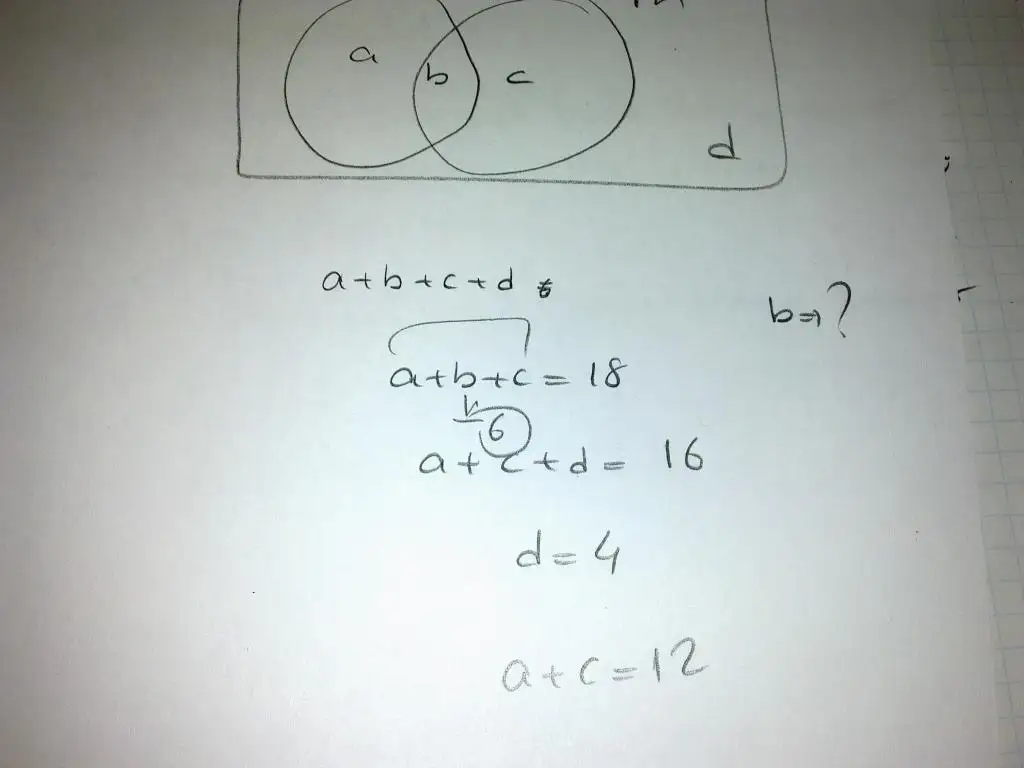 a
b c
d
a+b+c+d
b⇒?
a+b+c=18
6
a+c+d= 16
d=4
a+c=12